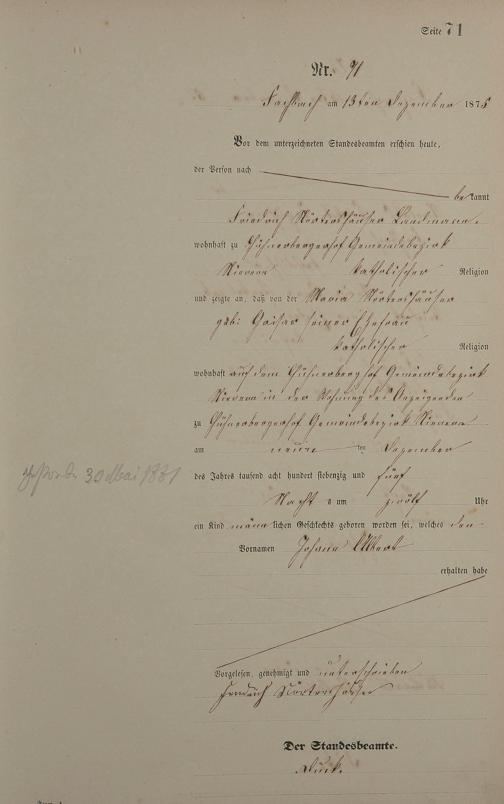 Seite 71
Nr. 91
Fachbach am 13ten Dezember 1875
Vor dem unterzeichneten Standesbeamten erschien heute,
der Person nach
bekannt
Friedrich Nörtershäuser Landmann,
wohnhaft zu Hühnerbergerhof Gemeindebezirk
Nievern katholischer Religion
und zeigte an, daß von der Maria Nörtershäuser
geb: seiner Ehefrau
katholischer Religion
wohnhaft auf dem Hühnerberghof Gemeindebezirk
Nievern in der Wohnung des Anzeigenden
zu Hühnerbergerhof Gemeindebezirk Nievern
am neun ten Dezember
des Jahres tausend acht hundert siebenzig und fünf
Nachts um zwölf Uhr
gestorben 30 Mai 1881
ein Kind männlichen Geschlechts geboren worden sei, welches den
Vornamen Johann Albert
erhalten habe
Vorgelesen, genehmigt und unterschrieben
Friedrich Nörtershäuser
Der Standesbeamte.